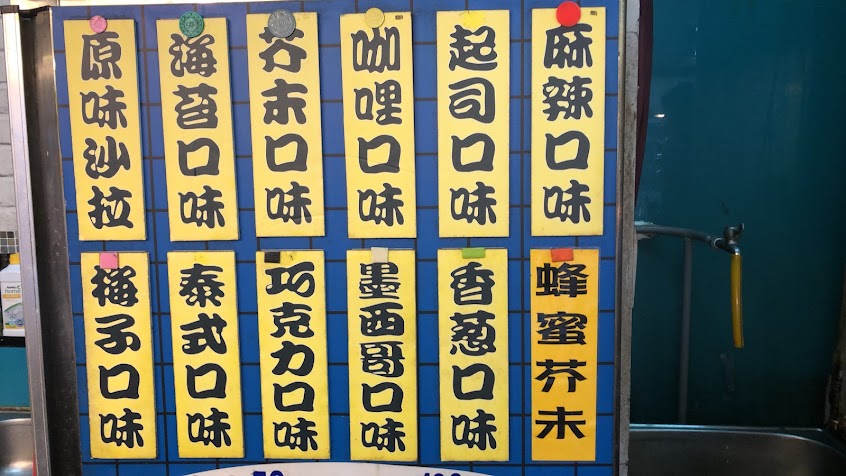 原味沙拉
海苔口味
芥末口味
咖哩口味
起司口味
麻辣口味
梅子口味
泰式口味
巧克力口味
墨西哥口味
香蔥口味
蜂蜜芥末